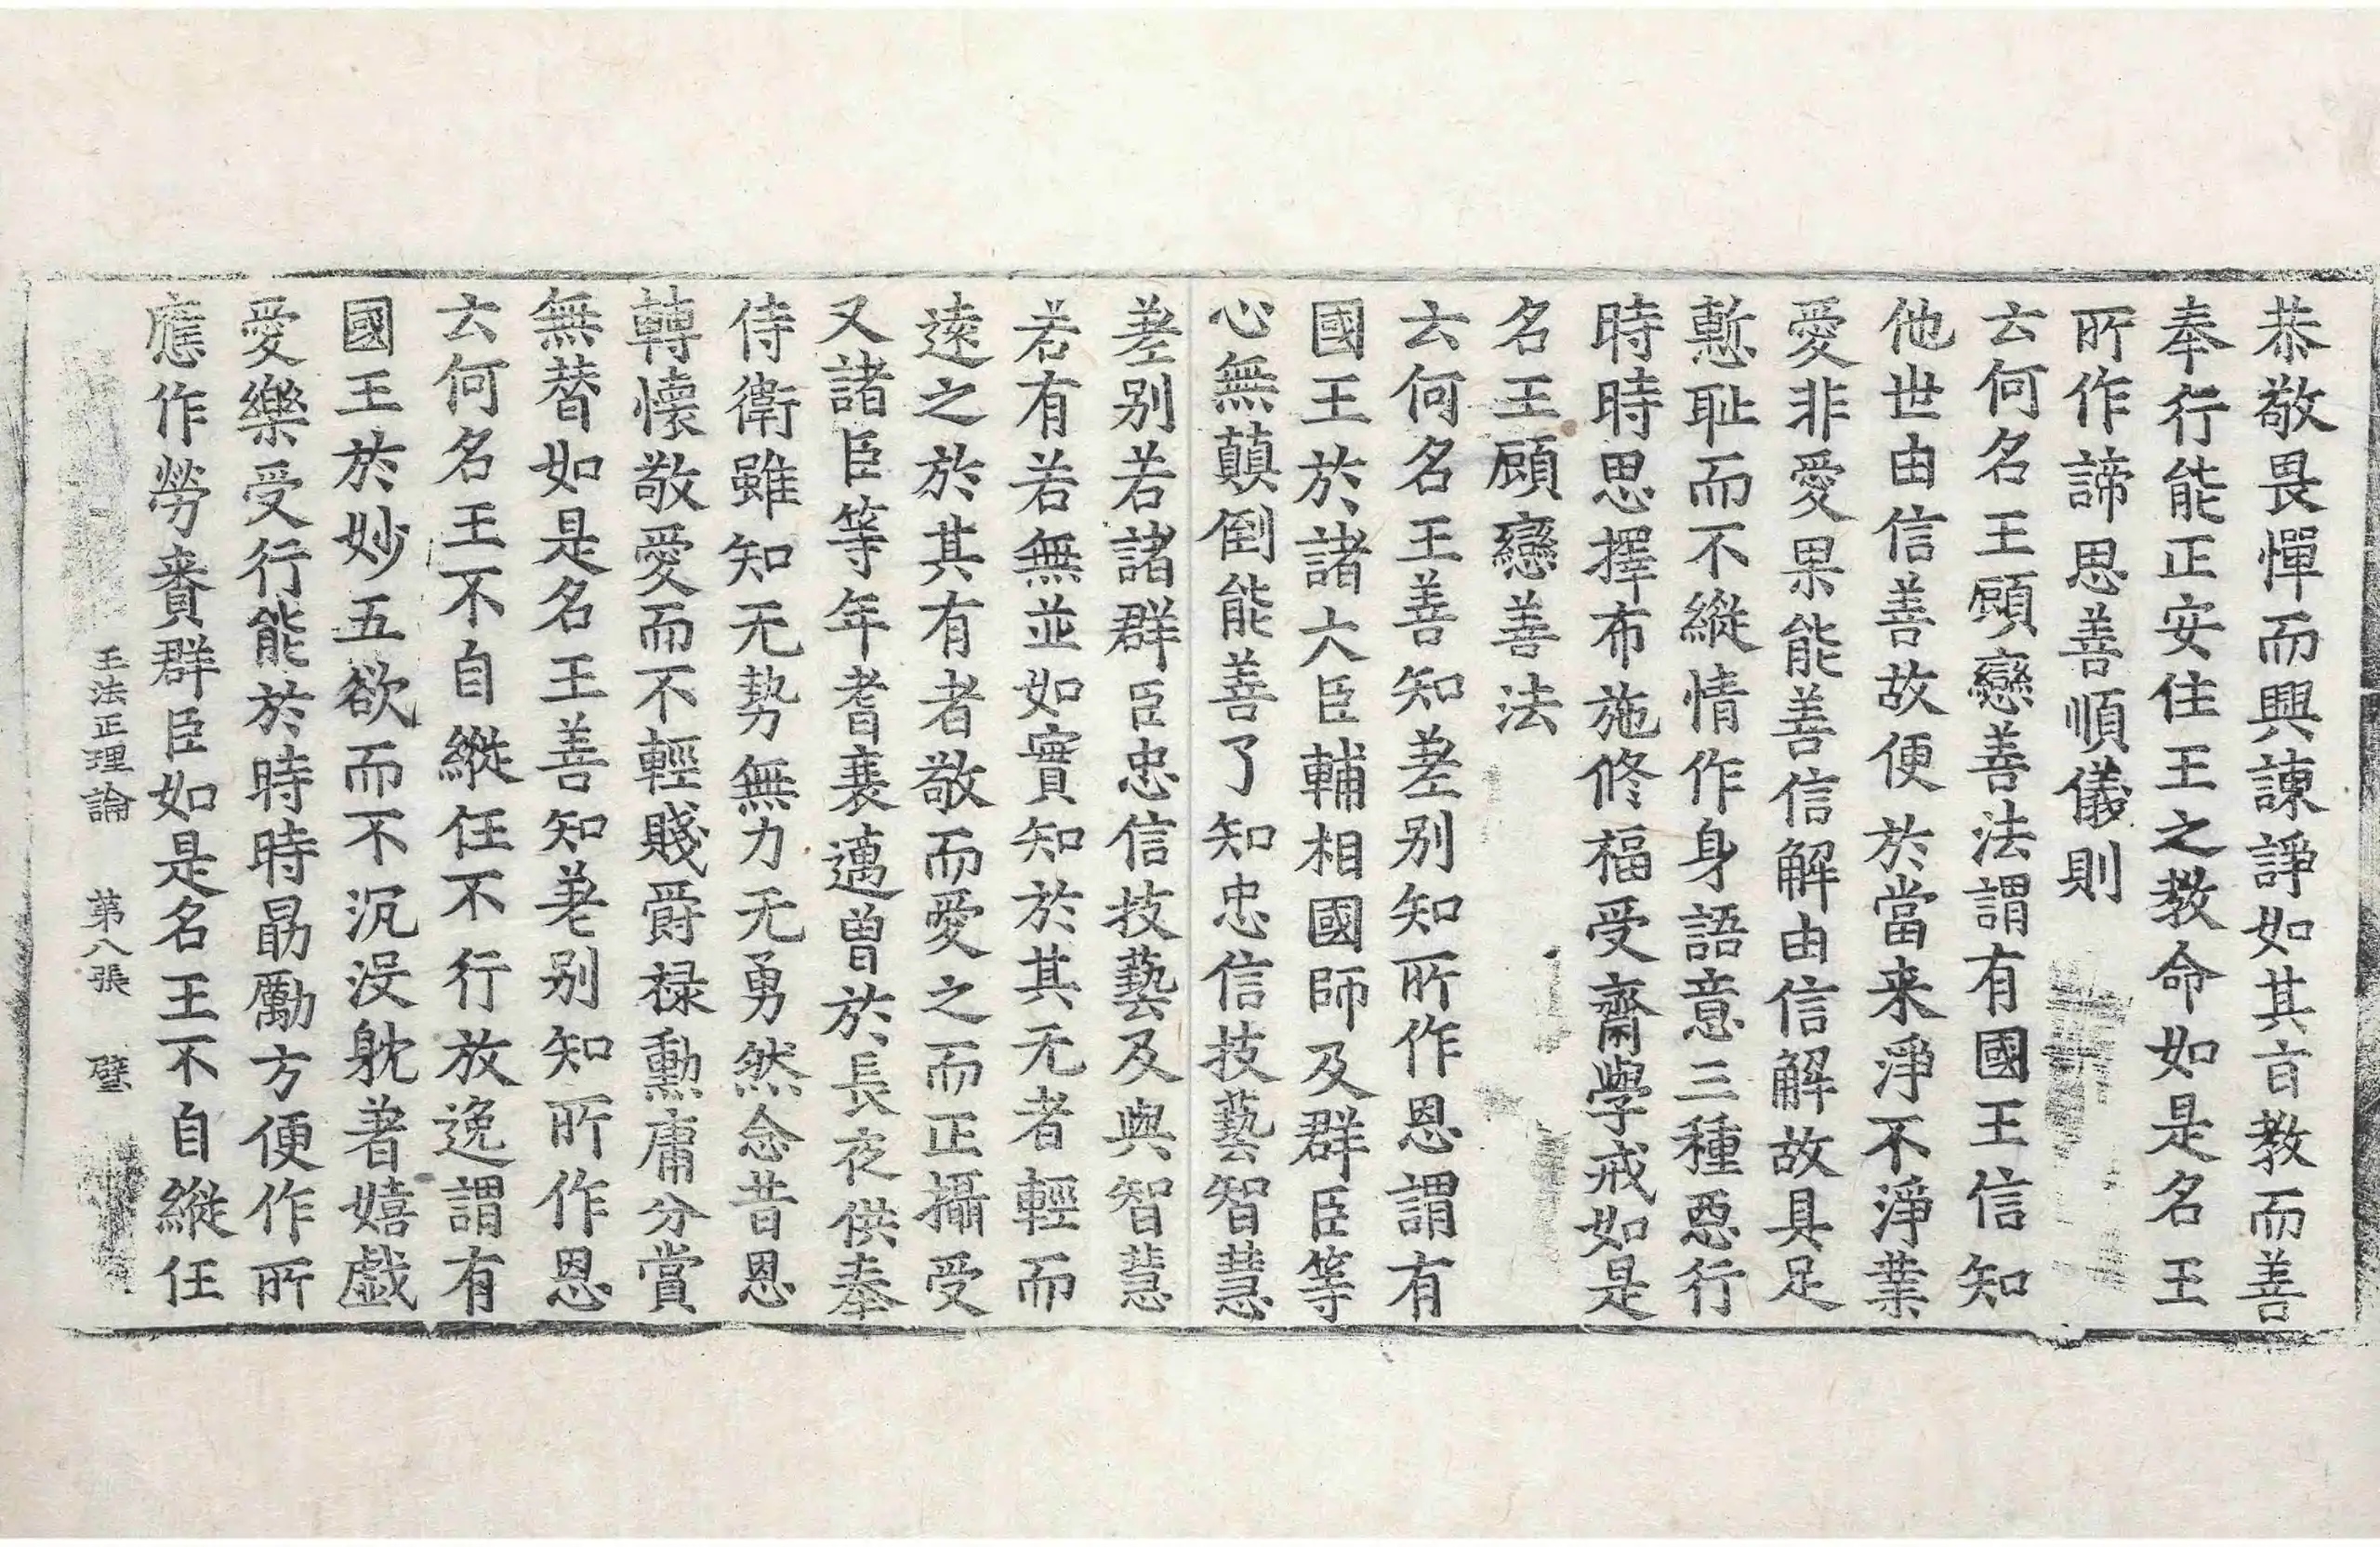 恭敬畏憚而興諫諍如其言教而善
奉行能正安住王之教命如是名王
所作諦思善順儀則
云何名王顧戀善法謂有國王信知
他世由信善故便於當来淨不淨業
愛非愛果能善信解由信解故具足
慙耻而不縱情作身語意三種惡行
時時思擇布施修福受齋學戒如是
名王顧戀善法
云何名王善知差别知所作恩謂有
國王於諸大臣輔相國師及群臣等
心無顛倒能善了知忠信技藝智慧
差别若諸群臣忠信技藝及與智慧
若有若無並如實知於其无者輕而
遠之於其有者敬而愛之而正攝受
又諸臣等年耆衰邁曾於長夜供奉
侍衛雖知无勢無力无勇然念昔恩
轉懷敬愛而不輕賤爵禄勳庸分賞
無替如是名王善知差别知所作恩
云何名王不自縱任不行放逸謂有
國王於妙五欲而不沉没躭著嬉戲
愛樂受行能於時時勗勵方便作所
應作勞賚群臣如是名王不自縱任
王法正理論　第八張　璧